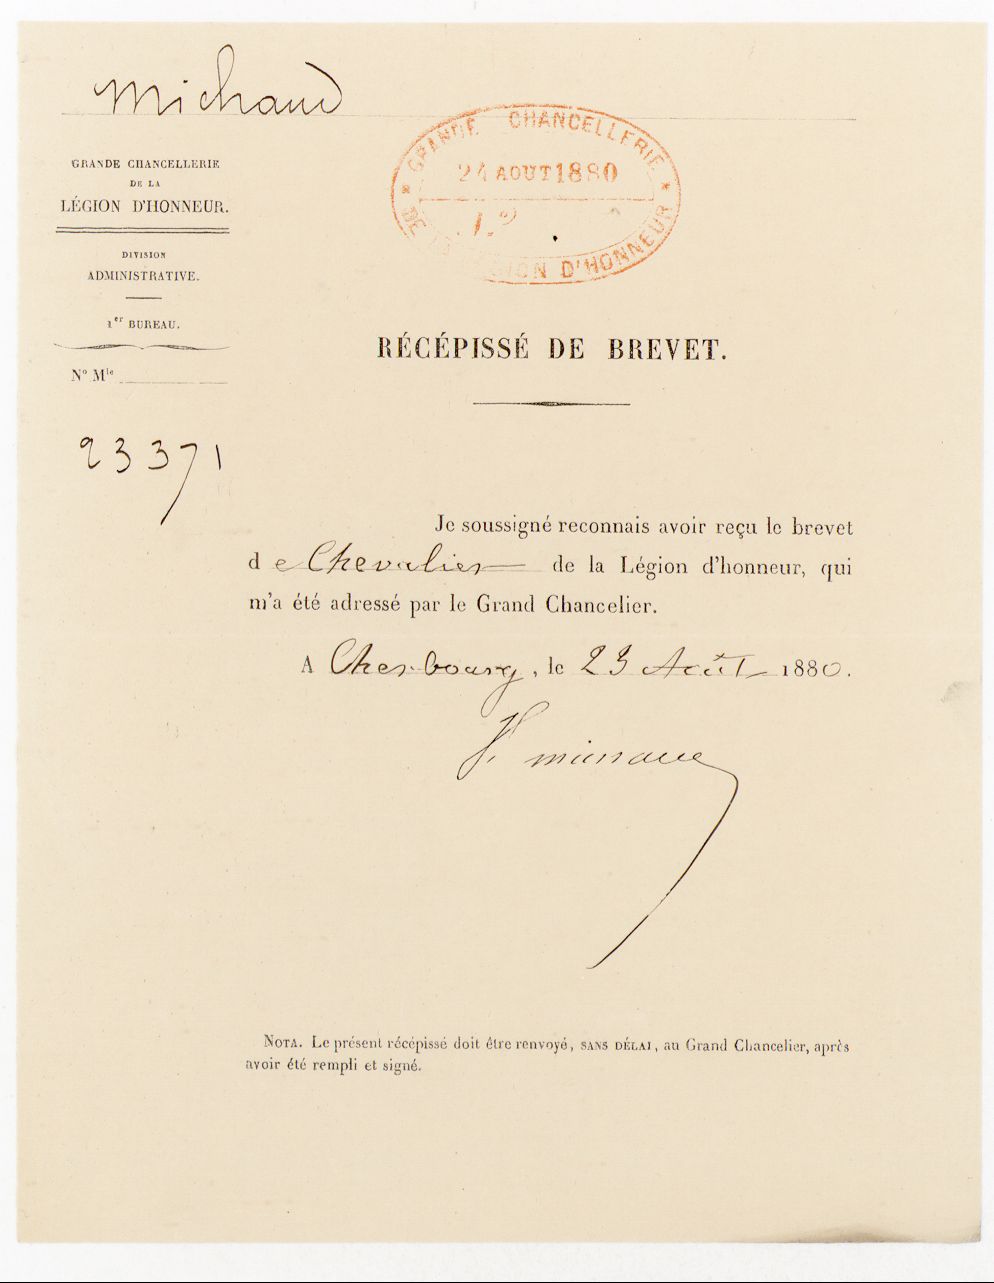 Michaud
GRANDE CHANCELLERIE
DE LA
LÉGION D'HONNEUR.
DIVISION
ADMINISTRATIVE.
1er BUREAU.
N° Mle
23371
GRANDE CHANCELLERIE
24 AOUT 1880
DE LA LÉGION D'HONNEUR
RÉCÉPISSÉ DE BREVET.
Je soussigné reconnais avoir reçu le brevet
de Chevalier de la Légion d'honneur, qui
m'a été adressé par le Grand Chancelier.
A Cherbourg, le 23 Août 1880.
NOTA. Le présent récépissé doit être renvoyé, SANS DÉLAI, au Grand Chancelier, après
avoir été rempli et signé.